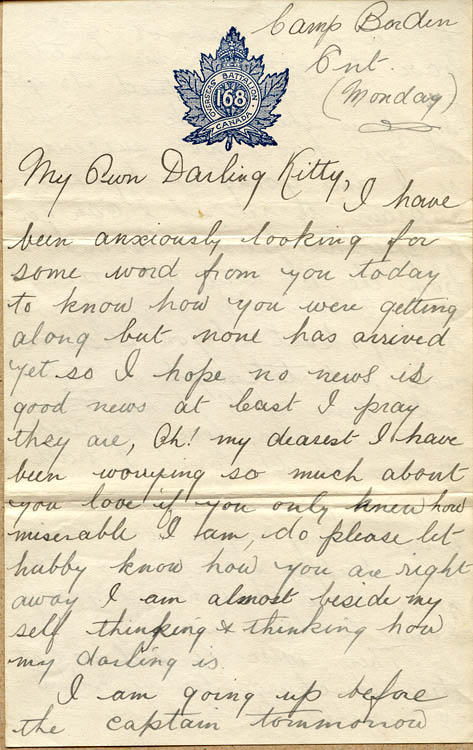 Camp Borden
Ont
(Monday)
OVERSEAS BATTALION
168
CANADA
My Own Darling Kitty,
I have
been anxiously looking for
some word from you today
to know how you were getting
along but none has arrived
yet so I hope no news is
good news at least I pray
they are, Oh! my dearest I have
been worrying so much about
you love if you only knew how
miserable I am, do please let
hubby know how you are right
away I am almost beside my
self thinking & thinking how
my darling is.
I am going up before
the captain tommorrow